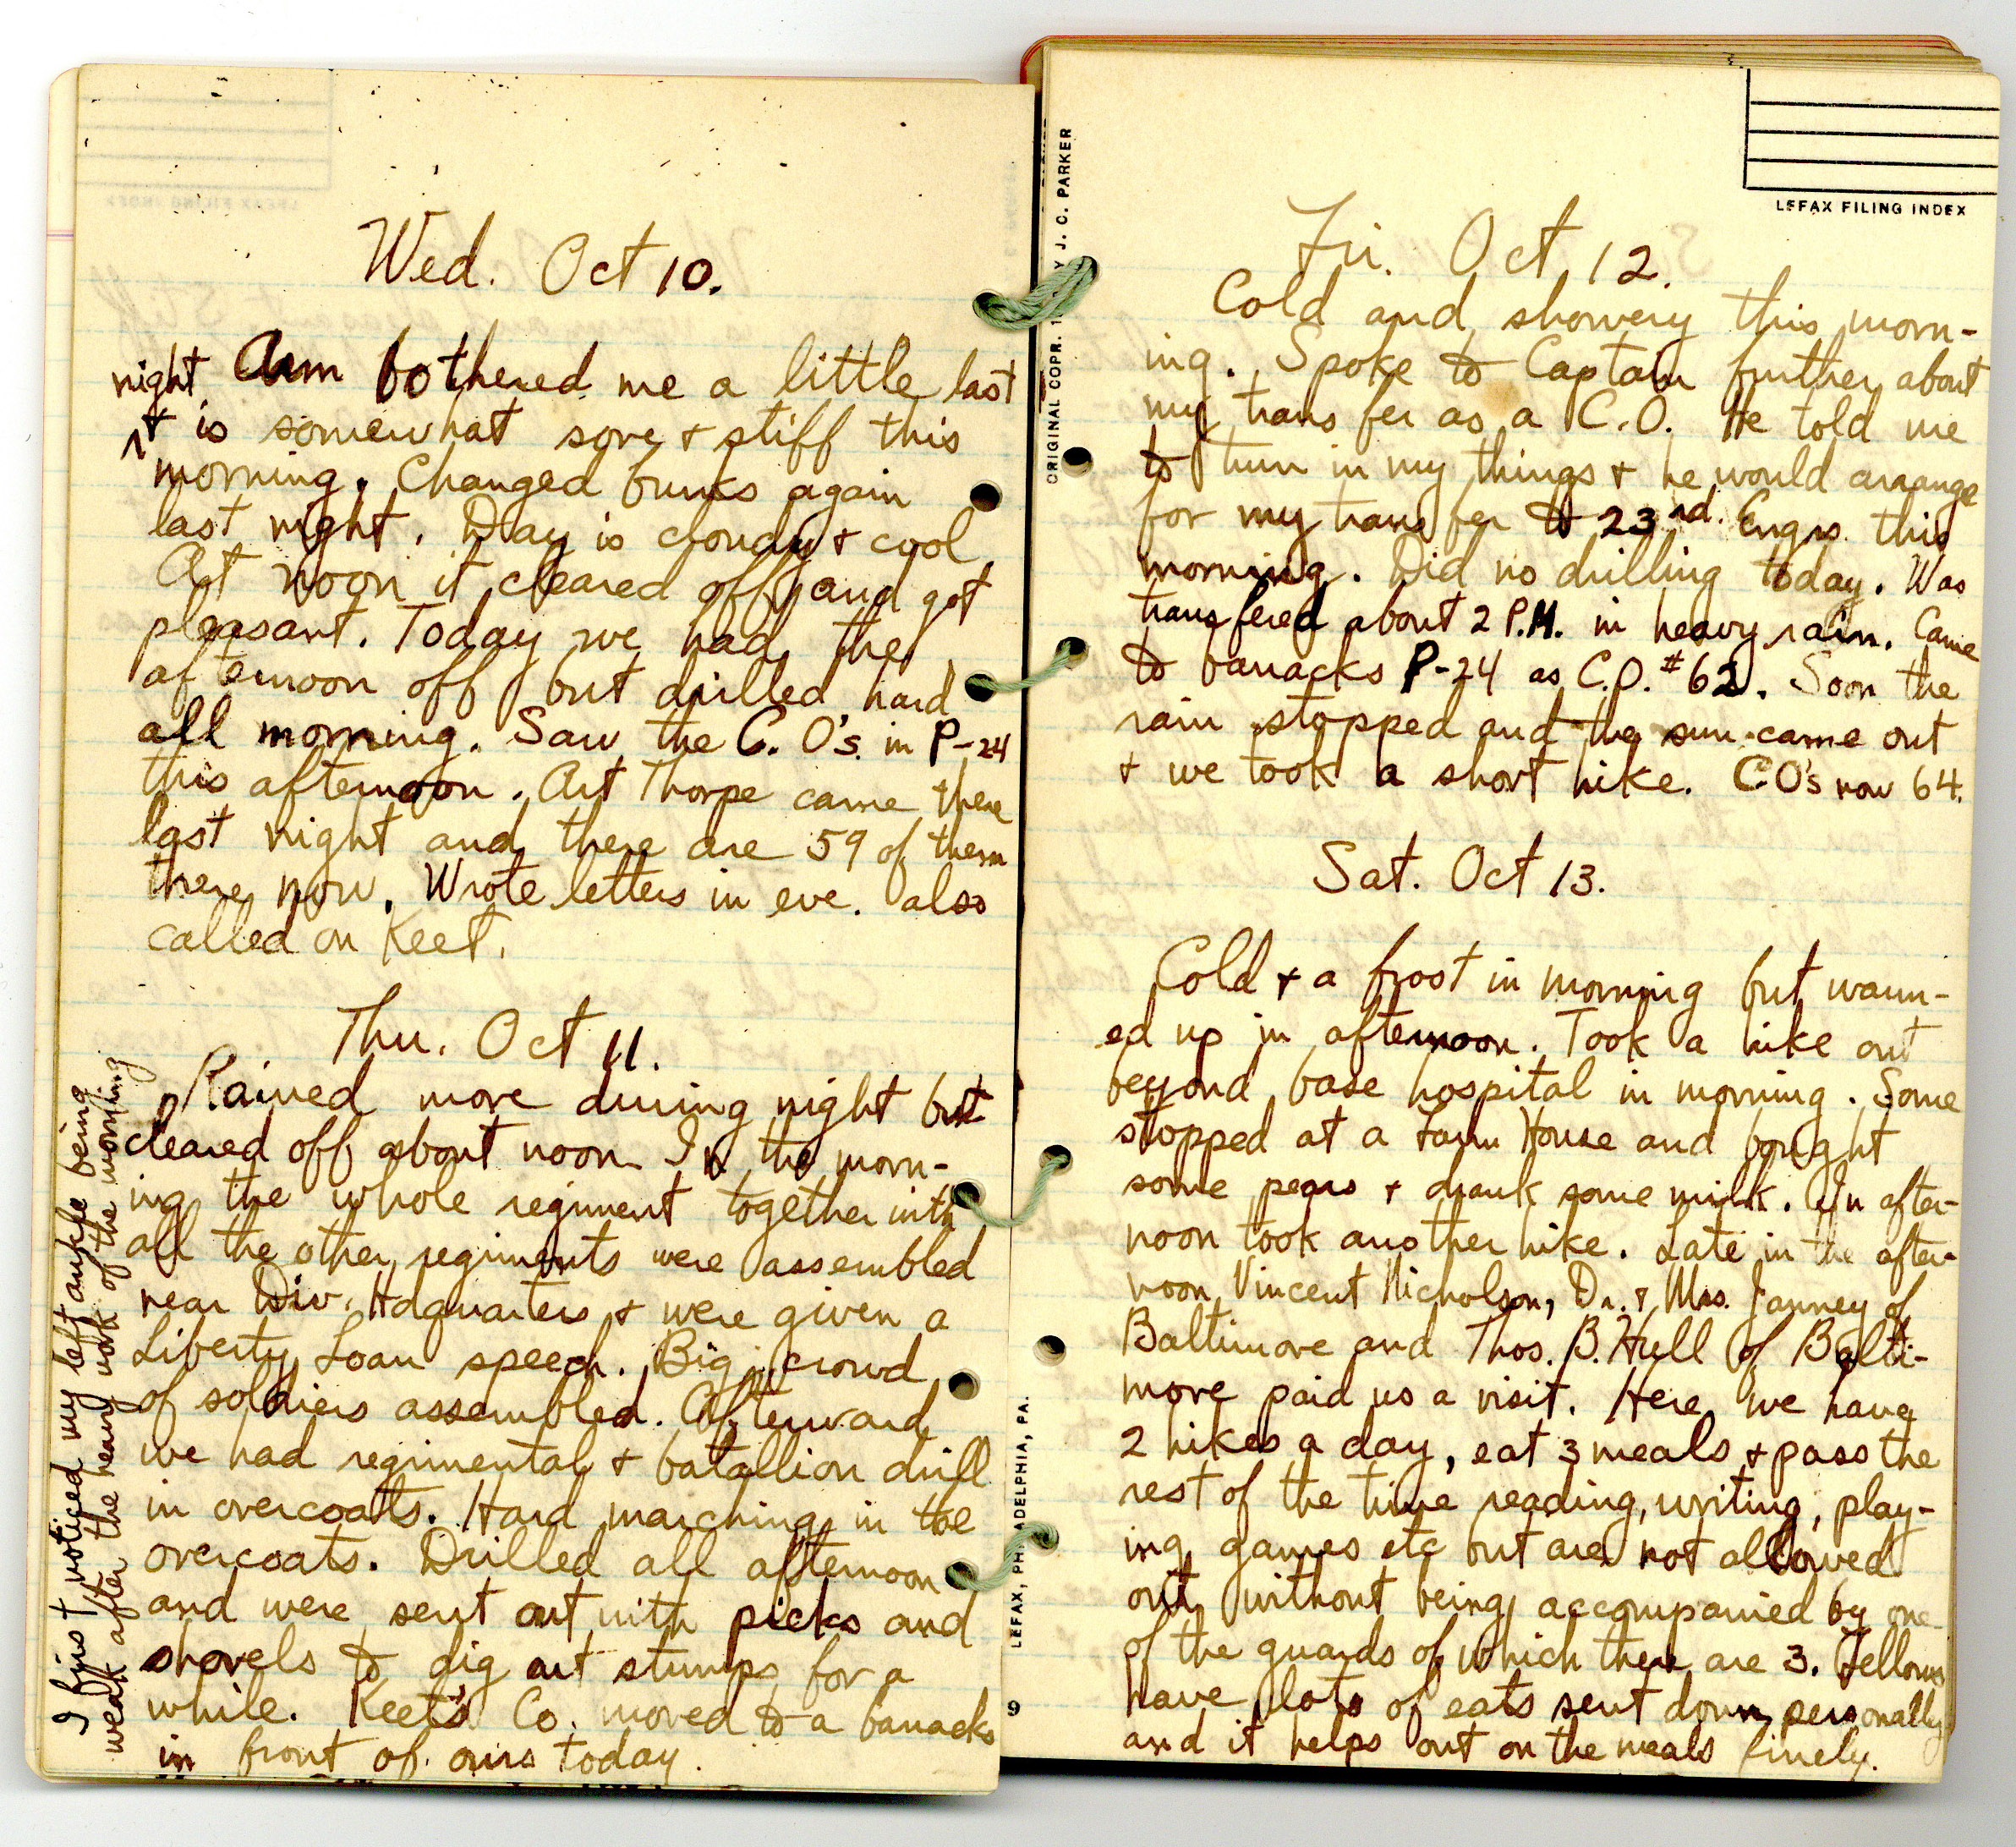 Wed. Oct 10.
Arm bothered me a little last
night
It is somewhat sore & stiff this
morning. Changed bunks again
last night. Day is cloudy & cool
At noon it cleared off and got
pleasant. Today we had the
afternoon off but drilled hard
all morning. Saw the C. O's. in P-24
this afternoon. Art Thorpe came there
last night and there are 59 of them
there now. Wrote letters in eve. also
called on Keet.
Thu. Oct 11.
Rained more during night but
cleared off about noon. In the morn-
ing the whole regiment together with
all the other regiments were assembled
near Div. Hdquarters & were given a
Liberty Loan speech. Big crowd
of soldiers assembled. Afterward
we had regimental & batallion drill
in overcoats. Hard marching in the
overcoats. Drilled all afternoon
and were sent out with picks and
shovels to dig out stumps for a
while. Keet's Co. moved to a barracks
in front of ours today.
I first noticed my left ankle being
weak after the heavy work of the morning
LEFAX FILING INDEX
ORIGINAL COPR. Y J. C. PARKER
LEFAX, PHILADELPHIA, PA.
9
Fri. Oct 12.
Cold and showery this morn-
ing. Spoke to Captain further about
my transfer as a C.O. He told me
to turn in my things & he would arrange
for my transfer to 23rd. Engrs. this
morning. Did no drilling today. Was
transfered about 2 P.M. in heavy rain. Came
to barracks P-24 as C.O. #62. Soon the
rain stopped and the sun came out
& we took a short hike. CO's now 64.
Sat. Oct 13.
Cold & a frost in morning but warm-
ed up in afternoon. Took a hike out
beyond base hospital in morning. Some
stopped at a Farm House and bought
some pears & drank some milk. In after-
noon took another hike. Late in the after-
noon Vincent Nicholson, Dr. & Mrs. Janney of
Baltimore and Thos. B. Hull of Balti-
more paid us a visit. Here we have
2 hikes a day, eat 3 meals & pass the
rest of the time reading, writing, play-
ing games etc but are not allowed
out without being accompanied by one
of the guards of which there are 3. Fellows
have lots of eats sent down personally
and it helps out on the meals finely.